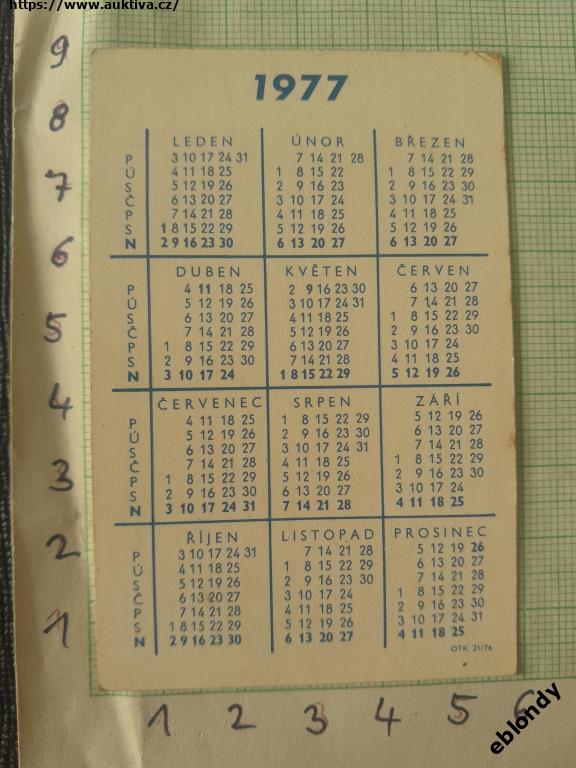 https://www.auktiva.cz/
9
8
7
6
5
4
3
2
1
1977
LEDEN ÚNOR BŘEZEN
P 3 10 17 24 31 7 14 21 28 7 14 21 28
Ú 4 11 18 25 1 8 15 22 1 8 15 22 29
S 5 12 19 26 2 9 16 23 2 9 16 23 30
Č 6 13 20 27 3 10 17 24 3 10 17 24 31
P 7 14 21 28 4 11 18 25 4 11 18 25
S 1 8 15 22 29 5 12 19 26 5 12 19 26
N 2 9 16 23 30 6 13 20 27 6 13 20 27
DUBEN KVĚTEN ČERVEN
P 4 11 18 25 2 9 16 23 30 6 13 20 27
Ú 5 12 19 26 3 10 17 24 31 7 14 21 28
S 6 13 20 27 4 11 18 25 1 8 15 22 29
Č 7 14 21 28 5 12 19 26 2 9 16 23 30
P 1 8 15 22 29 6 13 20 27 3 10 17 24
S 2 9 16 23 30 7 14 21 28 4 11 18 25
N 3 10 17 24 1 8 15 22 29 5 12 19 26
ČERVENEC SRPEN ZÁŘÍ
P 4 11 18 25 1 8 15 22 29 5 12 19 26
Ú 5 12 19 26 2 9 16 23 30 6 13 20 27
S 6 13 20 27 3 10 17 24 31 7 14 21 28
Č 7 14 21 28 4 11 18 25 1 8 15 22 29
P 1 8 15 22 29 5 12 19 26 2 9 16 23 30
S 2 9 16 23 30 6 13 20 27 3 10 17 24
N 3 10 17 24 31 7 14 21 28 4 11 18 25
ŘÍJEN LISTOPAD PROSINEC
P 3 10 17 24 31 7 14 21 28 5 12 19 26
Ú 4 11 18 25 1 8 15 22 29 6 13 20 27
S 5 12 19 26 2 9 16 23 30 7 14 21 28
Č 6 13 20 27 3 10 17 24 1 8 15 22 29
P 7 14 21 28 4 11 18 25 2 9 16 23 30
S 1 8 15 22 29 5 12 19 26 3 10 17 24 31
N 2 9 16 23 30 6 13 20 27 4 11 18 25
OTK 21/76
1 2 3 4 5 6
eblondy